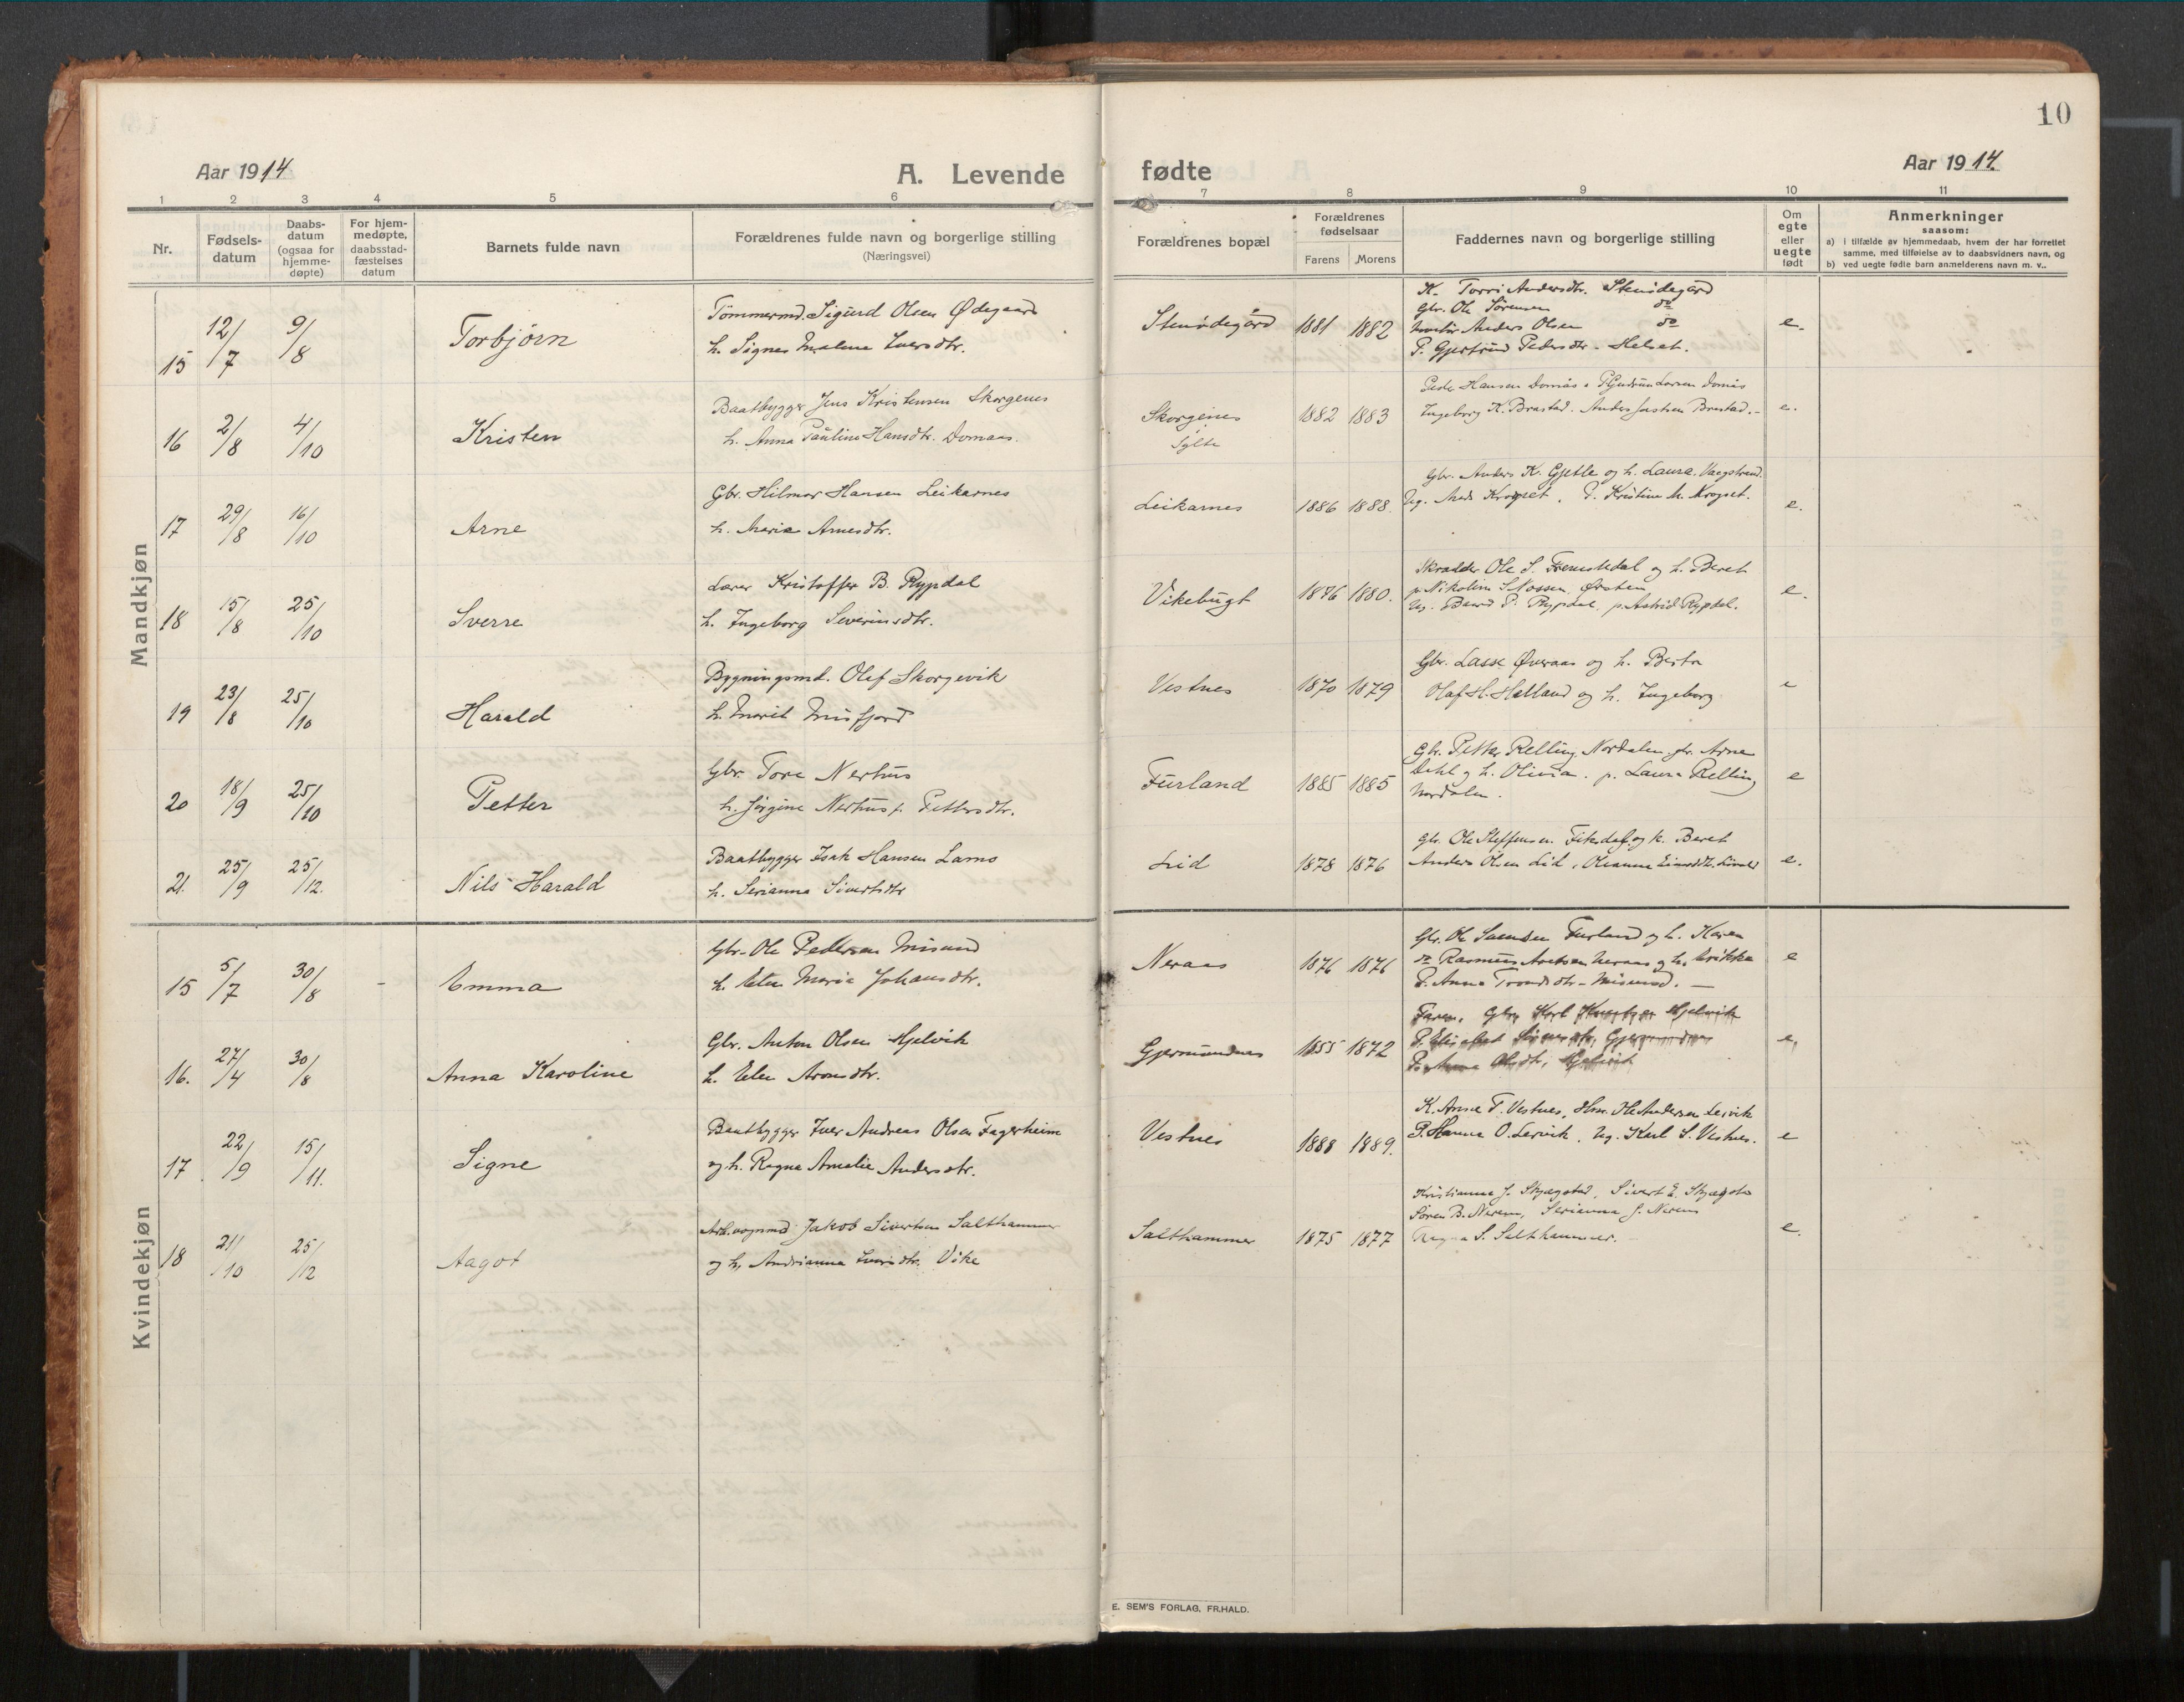 10
Aar 1914
A. Levende fødte
Aar 1914.
1 2 3 4 5 6 7 8 9 10 11
Nr.
Fødsels-
datum
Daabs-
datum
(ogsaa for
hjemme-
døpte)
For hjem-
medøpte,
daabsstad-
fæstelses
datum
Barnets fulde navn
Forældrenes fulde navn og borgerlige stilling
(Næringsvei)
Forældrenes bopæl
Forældrenes
fødselsaar
Farens Morens
Faddernes navn og borgerlige stilling
Om
egte
eller
uegte
født
Anmerkninger
saasom:
a) i tilfælde av hjemmedaab, hvem der har forrettet
samme, med tilføielse av to daabsvidners navn, og
b) ved uegte fødte barn anmelderens navn m. v..
Mandkjøn
15 12/7 9/8 Torbjørn
Tømmermd. Sigurd Olsen Ødegaard
h. Signe Malene Iversdtr.
Stenødegård 1881 1882
K. Torri Andersdtr. Stenødegård
Gbr. Ole Sörensen do
Anders Olsen do
P. Gjertrud Pedersdtr. Helset.
e.
16 2/8 4/10 Kristen
Baatbygger Jens Kristensen Skorgenes
h. Anna Pauline Hansdtr. Domaas.
Skorgenes
Sylte
1882 1883
Peder Hansen Domås Gudrun Larsen Domås
Ingeborg K. Brastad. Anders Brastad.
e.
17 29/8 16/10 Arne
Gbr. Hilmar Hansen Leikarnes
h. Marie Arnesdtr.
Leikarnes 1886 1888.
Gbr. Anders K. Gjelle og h. Laura. Vaagstrand.
Ug. Mads Krogset, P. Kristine M. Krogset.
e.
18 15/8 25/10 Sverre
Lærer Kristoffer B. Rypdal
h. Ingeborg Severinsdtr.
Vikebugt 1876 1880.
Skrædder Ole S. Fremstedal og h. Beret
p. Nikoline Nossen, Ørsten
Ug. Bård P. Rypdal, p. Astrid Rypdal.
e.
19 23/8 25/10 Harald
Bygningsmd. Olaf Skorgevik
h. Marit Misfjord
Vestnes 1870 1879
Gbr. Lasse Øveraas og h. Berta
Olaf H. Helland og h. Ingeborg
e
20 18/9 25/10 Petter
Gbr. Tore Nerhus
h. Jørgine Nerhus f. Pettersdtr.
Furland 1885 1885
Gbr. Petter Relling, Nordalen. gbr. Arne
Dahl og h. Olivia. p. Laura Relling
Nordalen.
e
21. 25/9 25/12. Nils Harald
Baatbygger Isak Hansen Lams
h. Serianna Sivertsdtr
Lid 1878 1876
Gbr. Ole Steffensen Fiksdal og k. Beret
Anders Olsen Lid, Oleanna
e.
Kvindekjøn
15 5/7 30/8 - Emma
Gbr. Ole Pedersen Misund
h. Elen Marie Johansdtr.
Neraas 1876 1876
Gbr. Ole Furland og h. Karen
do Rasmus Neraas og h. Erikka
P. Anna Trondsdtr. Misund. —
e
16. 27/4 30/8 Anna Karoline
Gbr. Anton Olsen Hjelvik
h. Elen Aronsdtr.
Gjermundnes 1855 1872
Faren, Gbr. Karl Hjelvik
P. Gjermundnes
P. Anna Olsdtr, Hjelvik
e,
17. 22/9 15/11. Signe
Baatbygger Iver Andreas Olsen Fagerheim
og h. Ragna Amalie Andersdtr.
Vestnes 1888 1889.
K. Anne T. Vestnes, Hm. Ole Andersen Leirvik
P. Hanna O. Leirvik. Ug. Karl S. Vestnes.
e
18 21/10 25/12 Aagot
Jakob Sivertsen Salthammer
og h, Andrianna Iversdtr. Vike
Salthammer 1875 1877
Kristianna J. Skjegstad, Sivert E. Skjegstad
Søren B. Nerem, Serianna J. Nerem
Ragna S. Salthammer.
e.
E. SEM'S FORLAG, FR.HALD.